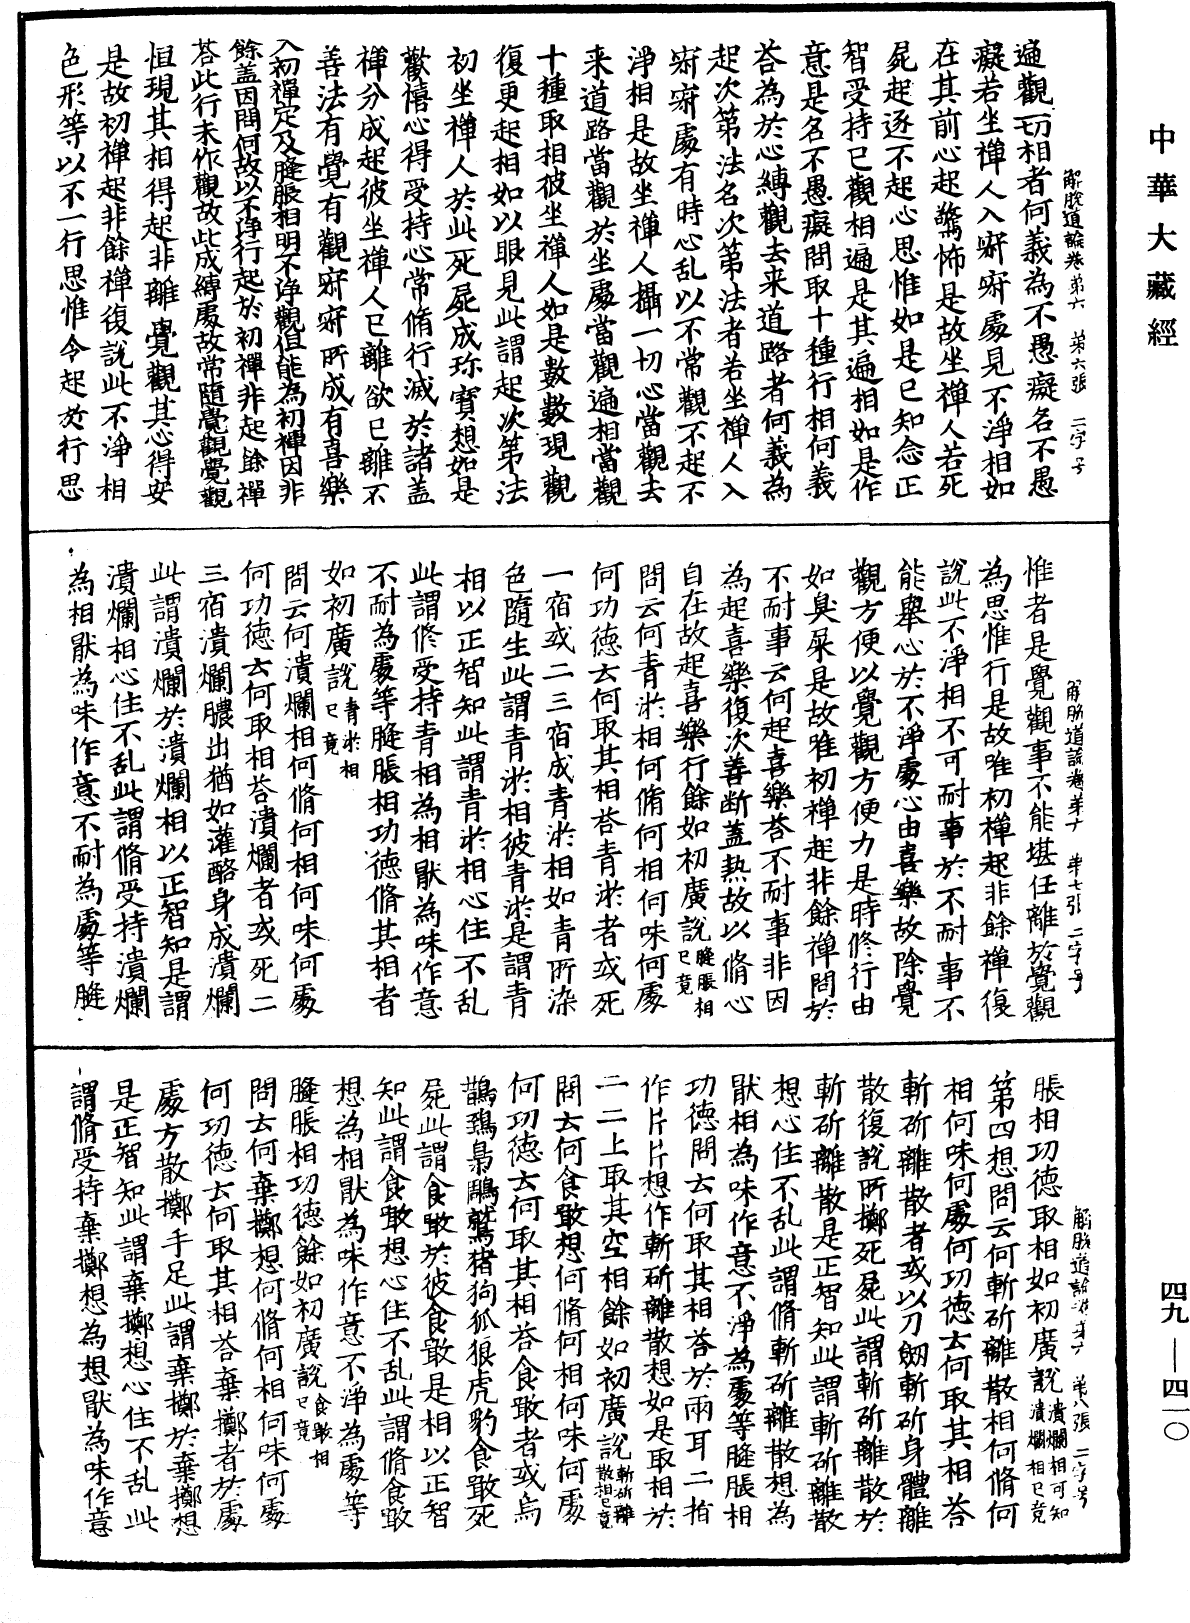 中華大藏經
解脫道論卷第六　第六張　二字号
遍觀一切相者何義為不愚癡名不愚
癡若坐禪人入寂寂處見不淨相如
在其前心起驚怖是故坐禪人若死
屍起逐不起心思惟如是已知念正
智受持已觀相遍是其遍相如是作
意是名不愚癡問取十種行相何義
荅為於心縛觀去来道路者何義為
起次第法名次第法者若坐禪人入
寂寂處有時心乱以不常觀不起不
淨相是故坐禪人攝一切心當觀去
来道路當觀於坐處當觀遍相當觀
十種取相彼坐禪人如是數數現觀
復更起相如以眼見此謂起次第法
初坐禪人於此死屍成珎寶想如是
歡憘心得受持心常脩行滅於諸蓋
禪分成起彼坐禪人已離欲已離不
善法有覺有觀寂寂所成有喜樂
入初禪定及膖脹相明不淨觀但能為初禪因非
餘蓋因問何故以不淨行起於初禪非起餘禪
荅此行未作觀故此成縛處故常隨覺觀覺觀
恒現其相得起非離覺觀其心得安
是故初禪起非餘禪復說此不淨相
色形等以不一行思惟令起於行思
解脫道論卷第六　第七張　二字号
惟者是覺觀事不能堪任離於覺觀
為思惟行是故唯初禪起非餘禪復
說此不淨相不可耐事於不耐事不
能舉心於不淨處心由喜樂故除覺
觀方便以覺觀方便力是時修行由
如臭屎是故唯初禪起非餘禪問於
不耐事云何起喜樂荅不耐事非因
為起喜樂復次善断蓋熱故以脩心
自在故起喜樂行餘如初廣說膖脹相已竟
問云何青淤相何脩何相何味何處
何功德云何取其相荅青淤者或死
一宿或二三宿成青淤相如青所染
色隨生此謂青淤相彼青淤是謂青
相以正智知此謂青淤相心住不乱
此謂修受持青相為相猒為味作意
不耐為處等膖脹相功德脩其相者
如初廣說青淤相已竟
問云何潰爛相何脩何相何味何處
何功德云何取相荅潰爛者或死二
三宿潰爛膿出猶如灌酪身成潰爛
此謂潰爛於潰爛相以正智知是謂
潰爛相心住不乱此謂脩受持潰爛
為相猒為味作意不耐為處等膖
解脫道論卷第六　第八張　二字号
脹相功德取相如初廣說潰爛相可知潰爛相已竟
第四想問云何斬斫離散相何脩何
相何味何處何功德云何取其相荅
斬斫離散者或以刀劒斬斫身體離
散復說所擲死屍此謂斬斫離散於
斬斫離散是正智知此謂斬斫離散
想心住不乱此謂脩斬斫離散想為
猒相為味作意不淨為處等膖脹相
功德問云何取其相荅於兩耳二指
作片片想作斬斫離散想如是取相於
一二上取其空相餘如初廣說斬斫離散相已竟
問云何食噉想何脩何相何味何處
何功德云何取其相荅食噉者或烏
鵲鵄梟鵰鷲猪狗狐狼虎豹食噉死
屍此謂食噉於彼食噉是相以正智
知此謂食噉想心住不乱此謂脩食噉
想為相猒為味作意不淨為處等
膖脹相功德餘如初廣說食噉相已竟
問云何棄擲想何脩何相何味何處
何功德云何取其相荅棄擲者於處
處方散擲手足此謂棄擲於棄擲想
是正智知此謂棄擲想心住不乱此
謂脩受持棄擲想為想猒為味作意
四九—四一〇